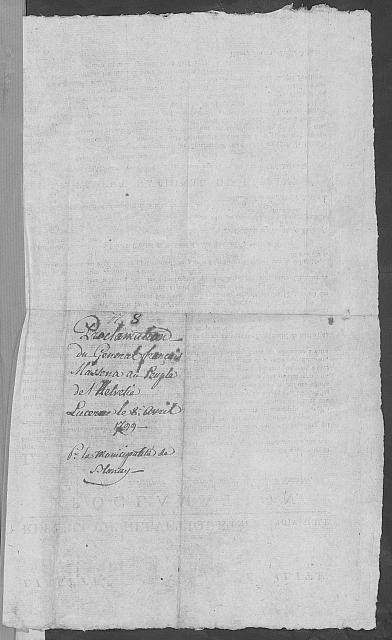 N° 8
Proclamation
du General français
Massena au Peuple
de l'Helvetie
Lucerne le 8. Avril
1799
Pr. la Municipalité de
Blonay